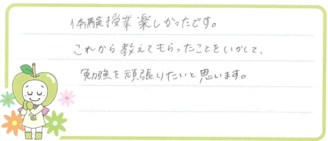 体験授業楽しかったです。
これから教えてもらったことをいかして、
勉強を頑張りたいと思います。